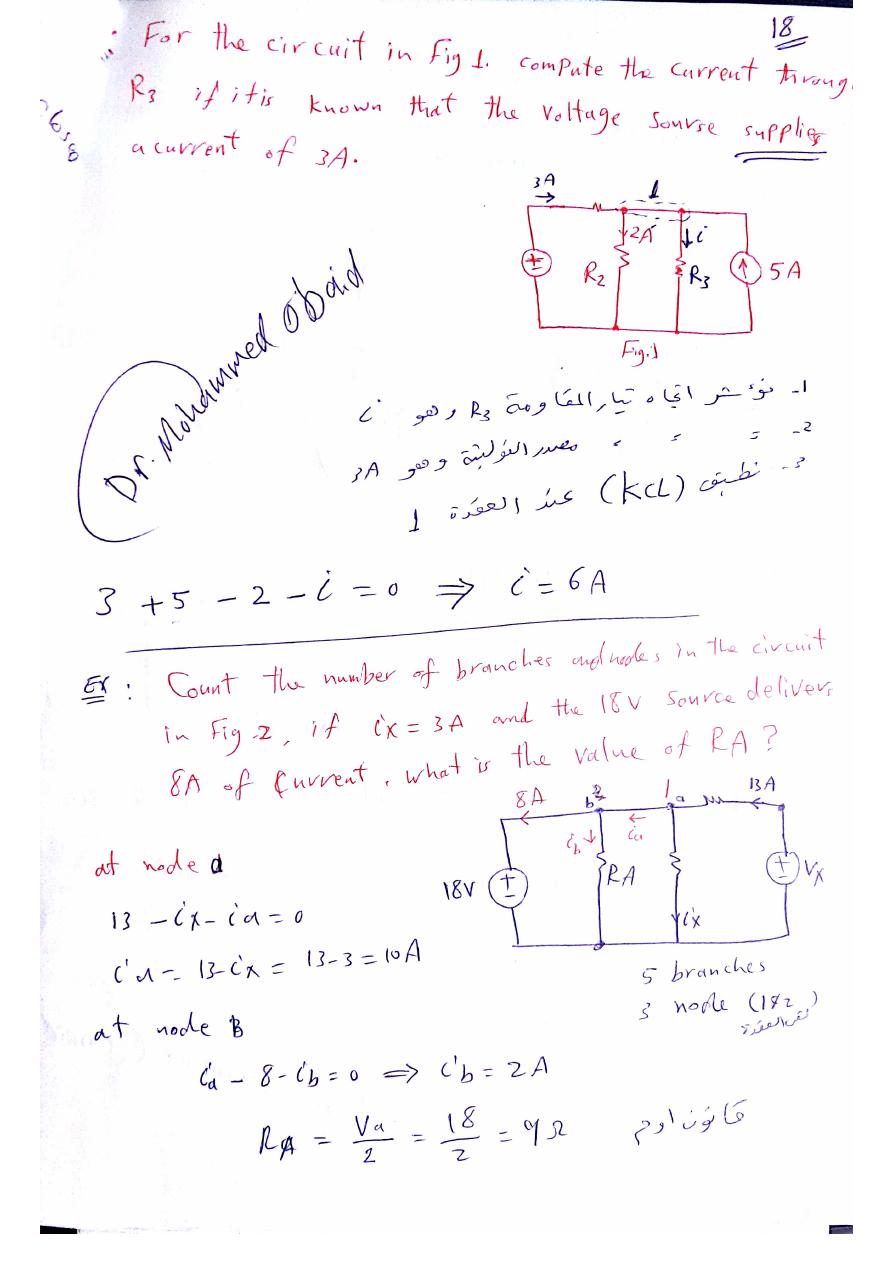 18
For the circuit in Fig 1. compute the current throug
R3 if it is known that the voltage sourse supplies
a current of 3A.
3A
1
2A
i
R2
R3
5A
Fig.1
Dr. Mohammed Obaid
1- نؤشر اتجاه تيار المقاومة R3 وهو i
2- = = = مصدر الفولتية وهو 3A
3- نطبق (KCL) عند العقدة 1
3 + 5 - 2 - i = 0 ⇒ i = 6A
Ex : Count the number of branches and nodes in the circuit
in Fig.2, if ix = 3A and the 18V source delivers
8A of Current, what is the value of RA ?
8A
b
2
1
a
13A
ib
ia
18V
RA
ix
Vx
at node a
13 - ix - ia = 0
ia = 13 - ix = 13 - 3 = 10A
5 branches
3 node (1&2)
نفس العقدة
at node B
ia - 8 - ib = 0 ⇒ ib = 2A
RA = Va/2 = 18/2 = 9Ω
قانون اوم